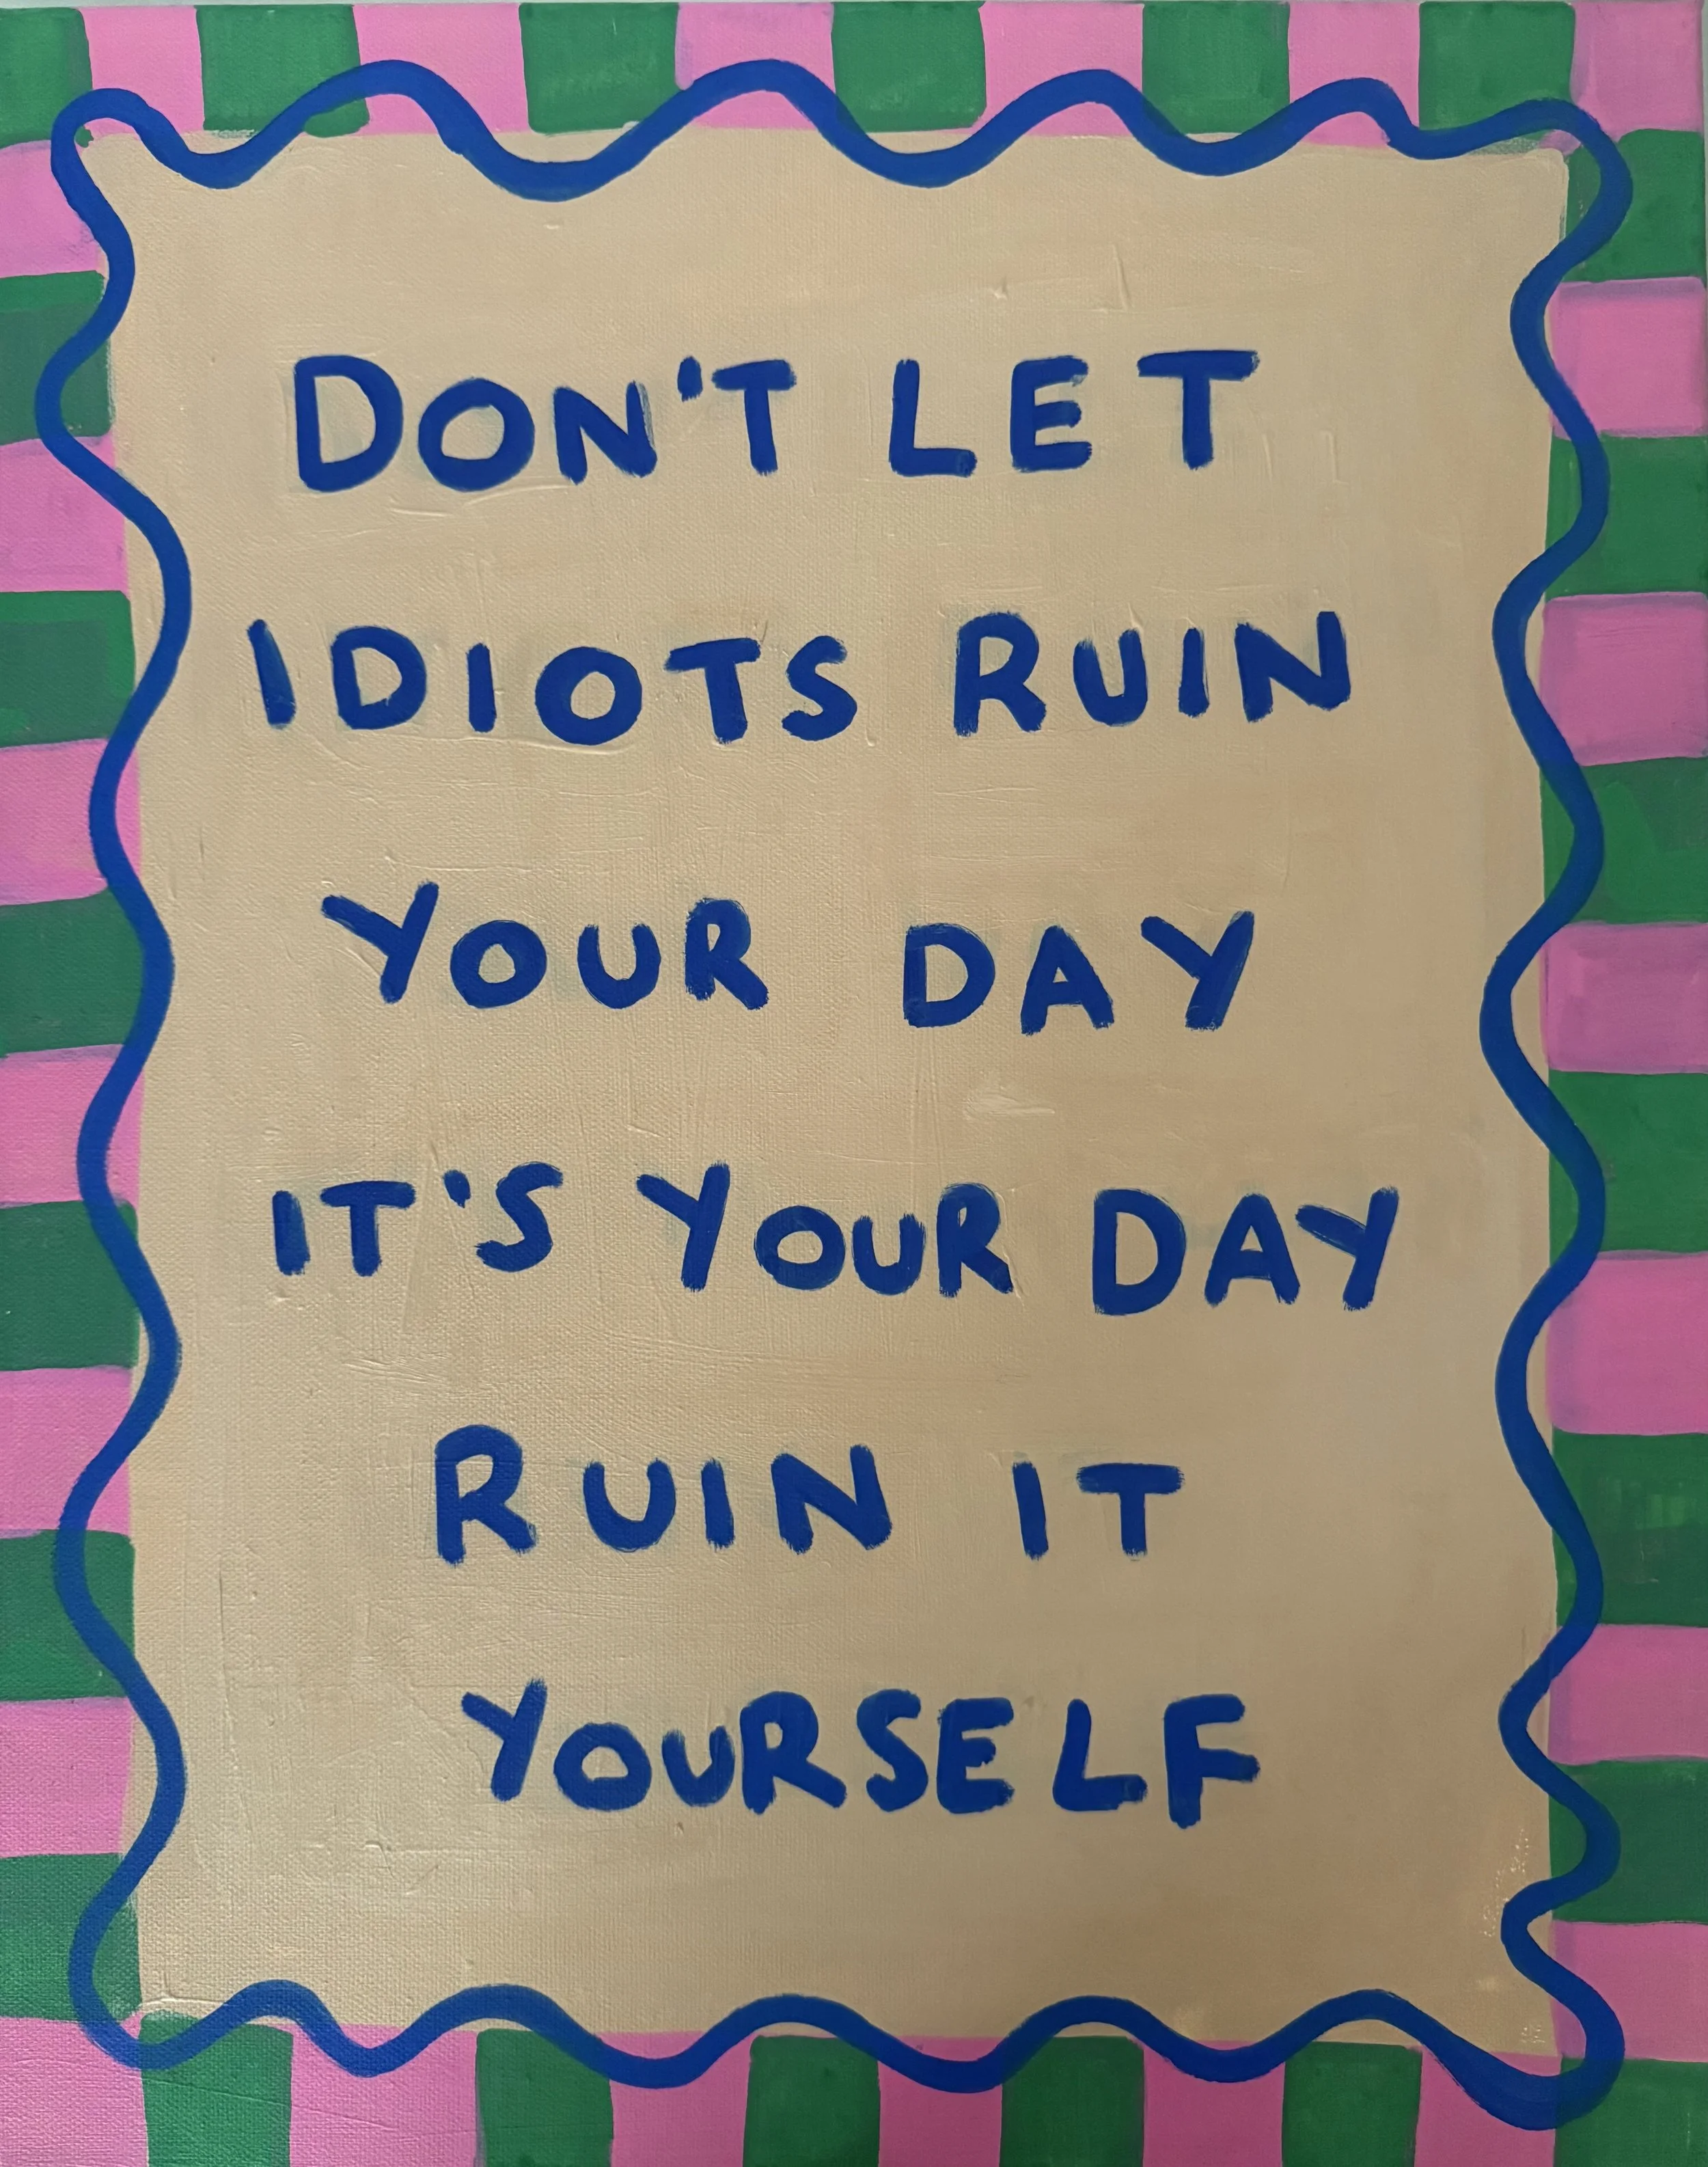 DON'T LET
IDIOTS RUIN
YOUR DAY
IT'S YOUR DAY
RUIN IT
YOURSELF